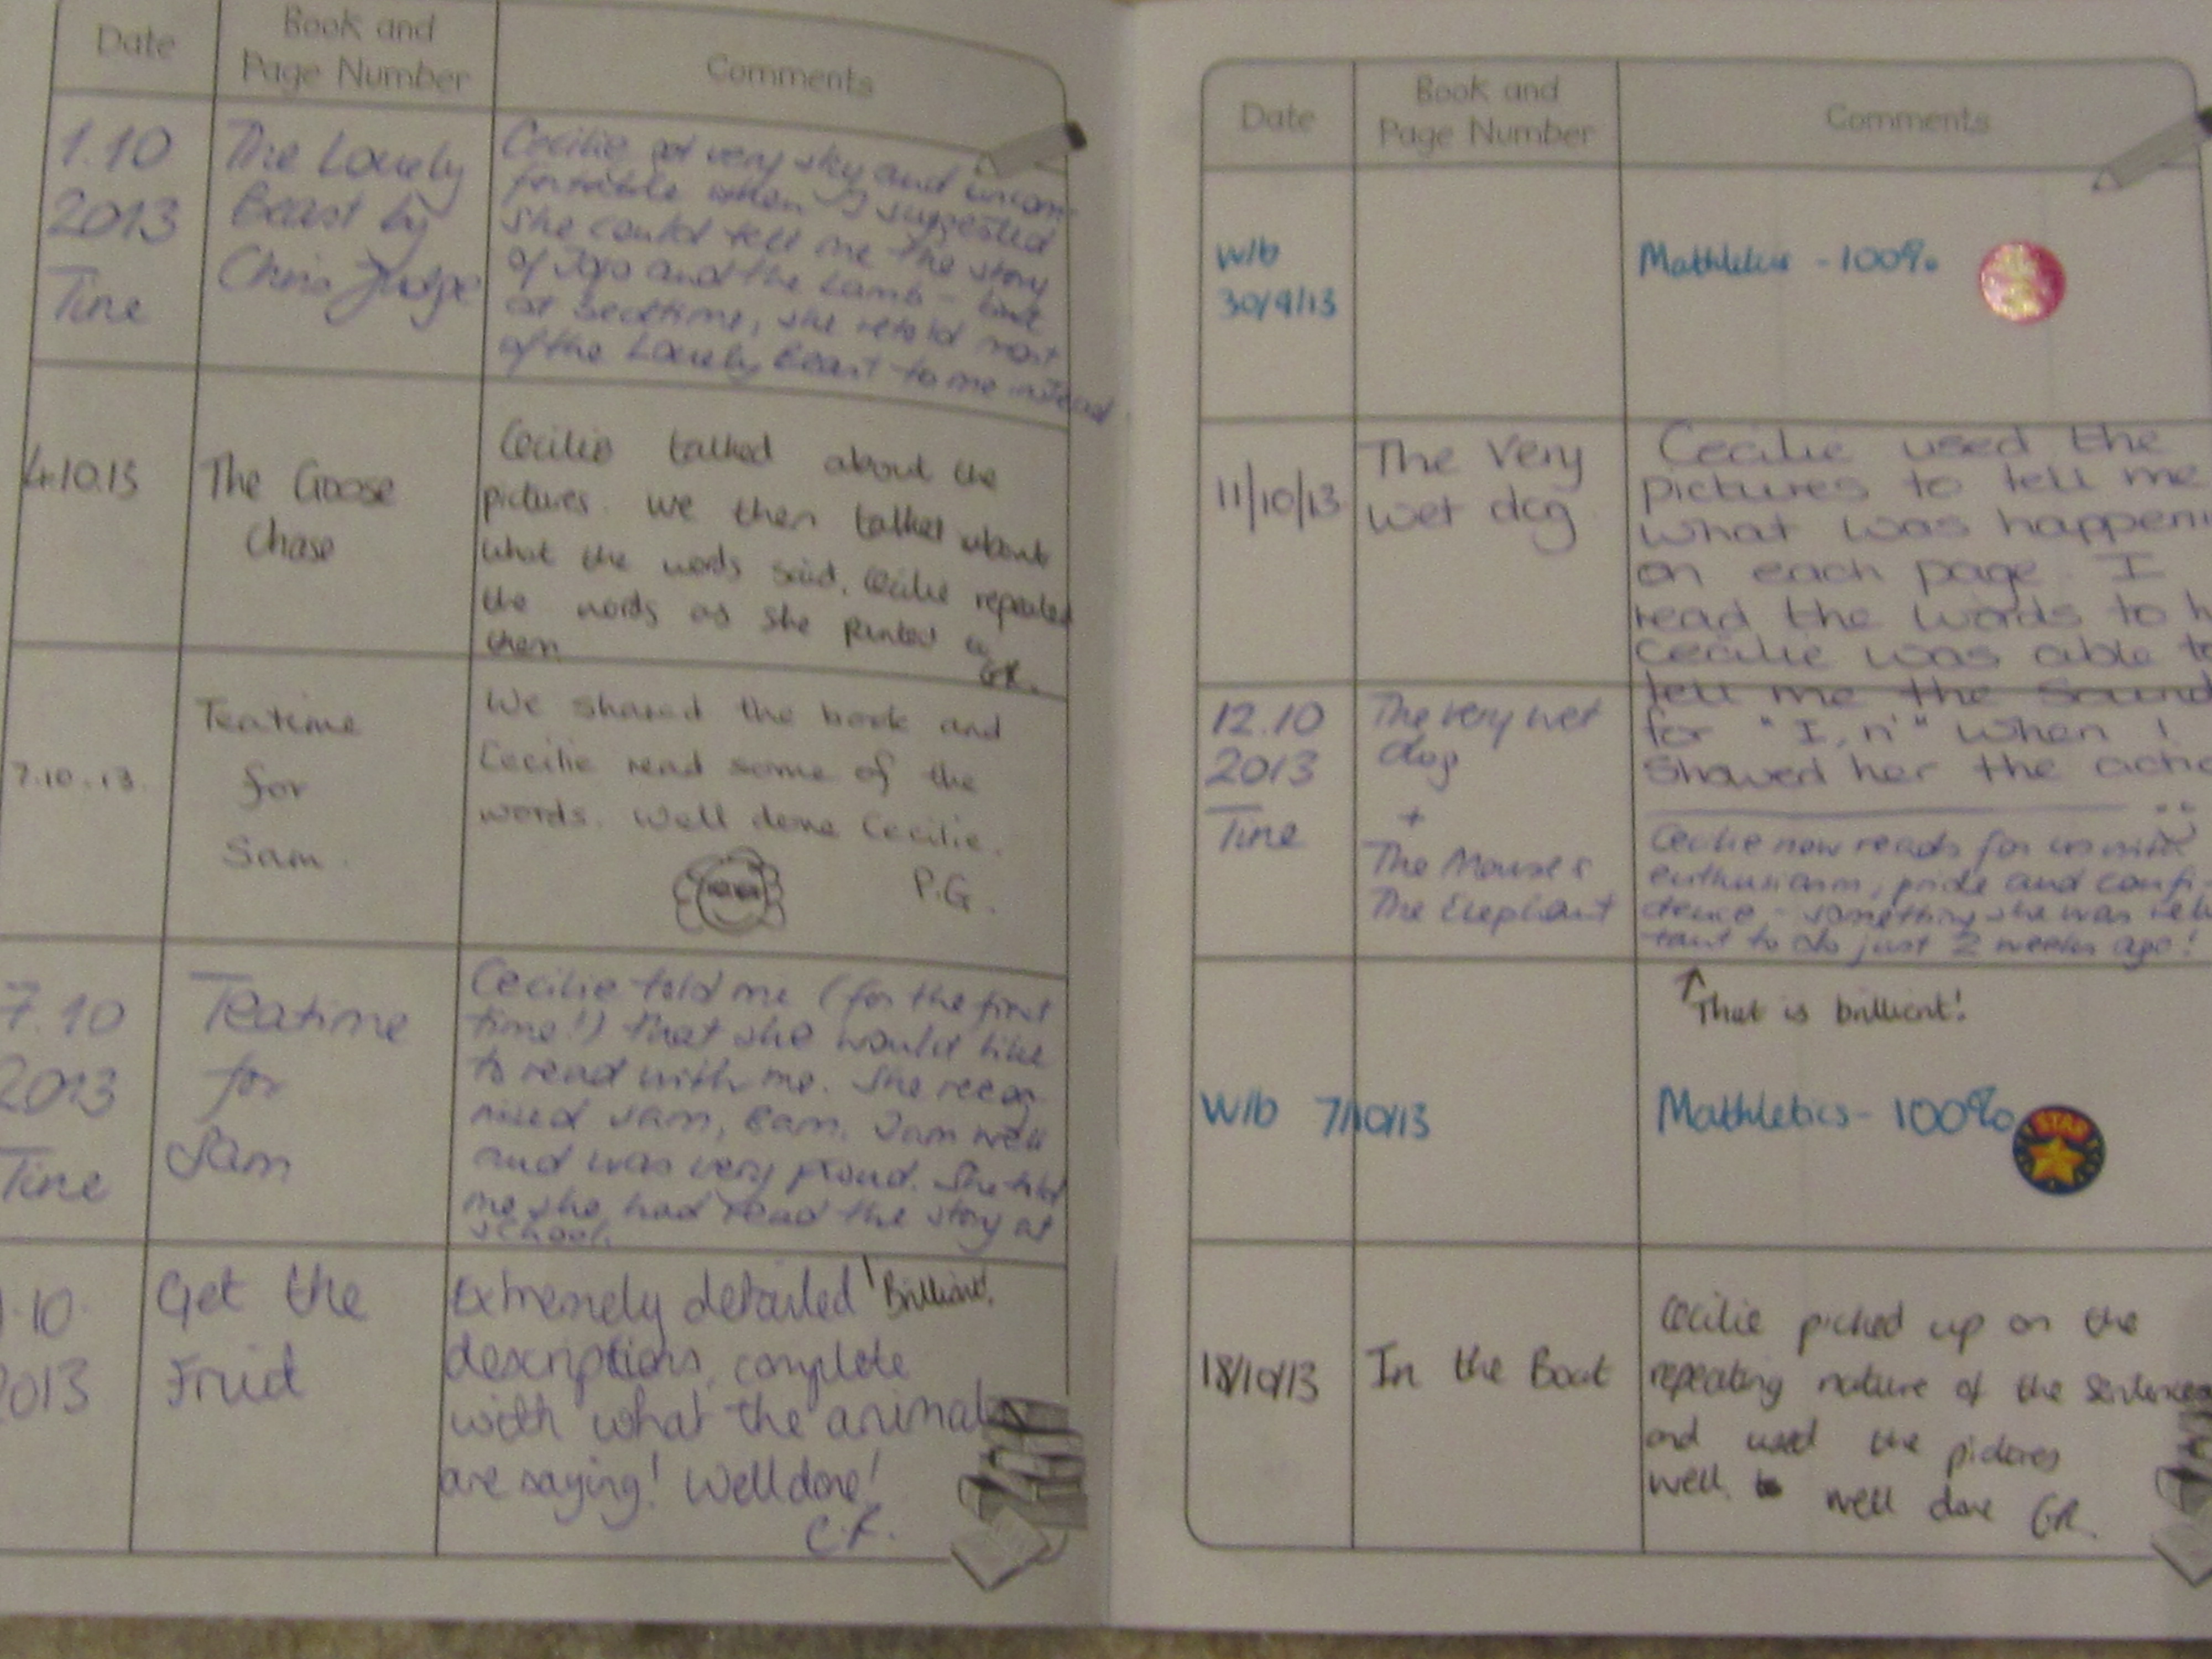 Date
Book and
Page Number
Comments
1.10
2013
Tine
The Lonely
Beast by
Chris Judge
Cecilie got very shy and uncom-
fortable when I suggested
she could tell me the story
of Jojo and the Lamb -
at bedtime, she retold most
of the Lonely Beast to me instead
4.10.13
The Goose
Chase
Cecilie talked about the
pictures. We then talked about
what the words said. Cecilie repeated
the words as she pointed to
them
GR.
7.10.13.
Teatime
for
Sam.
We shared the book and
Cecilie read some of the
words. Well done Cecilie.
P.G.
7.10
2013
Tine
Teatime
for
Sam
Cecilie told me (for the first
time!) that she would like
to read with me. She recog
nised Sam, Bam, Jam well
and was very proud. She told
me she had read the story at
school.
Brilliant!
.10.
2013
Get the
Fruit
Extremely detailed
descriptions, complete
with what the animals
are saying! Well done!
C.F.
Date
Book and
Page Number
Comments
W/b
30/9/13
Mathletics - 100%
11/10/13
The Very
wet dog
Cecilie used the
pictures to tell me
what was happeni
on each page. I
read the words to h
Cecilie was able to
tell me the sound
for "I, n" when I
showed her the actio
12.10
2013
Tine
The very wet
dog
+
The Mouse &
The Elephant
Cecilie now reads for us with
enthusiasm, pride and confi-
dence - something she was reluc
tant to do just 2 weeks ago!
That is brilliant!
W/b 7/10/13
Mathletics - 100%
STAR
18/10/13
In the Boat
Cecilie picked up on the
repeating nature of the sentences
and used the pictures
well. well done GR.